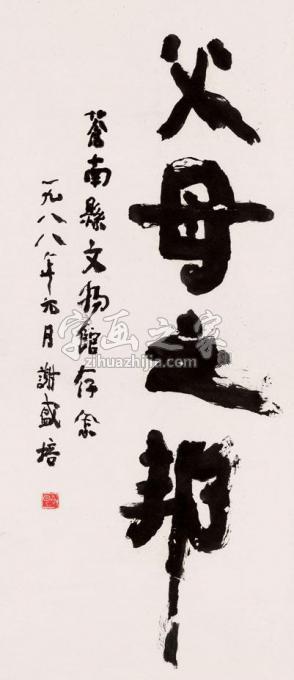 父母之邦
蒼南縣文物館存念
一九八八年元月 謝盛培
字画之家
zihuazhijia.com